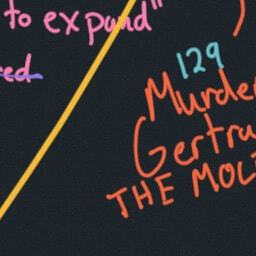 to expand"
red
129
Murde
Gertru
THE MOL